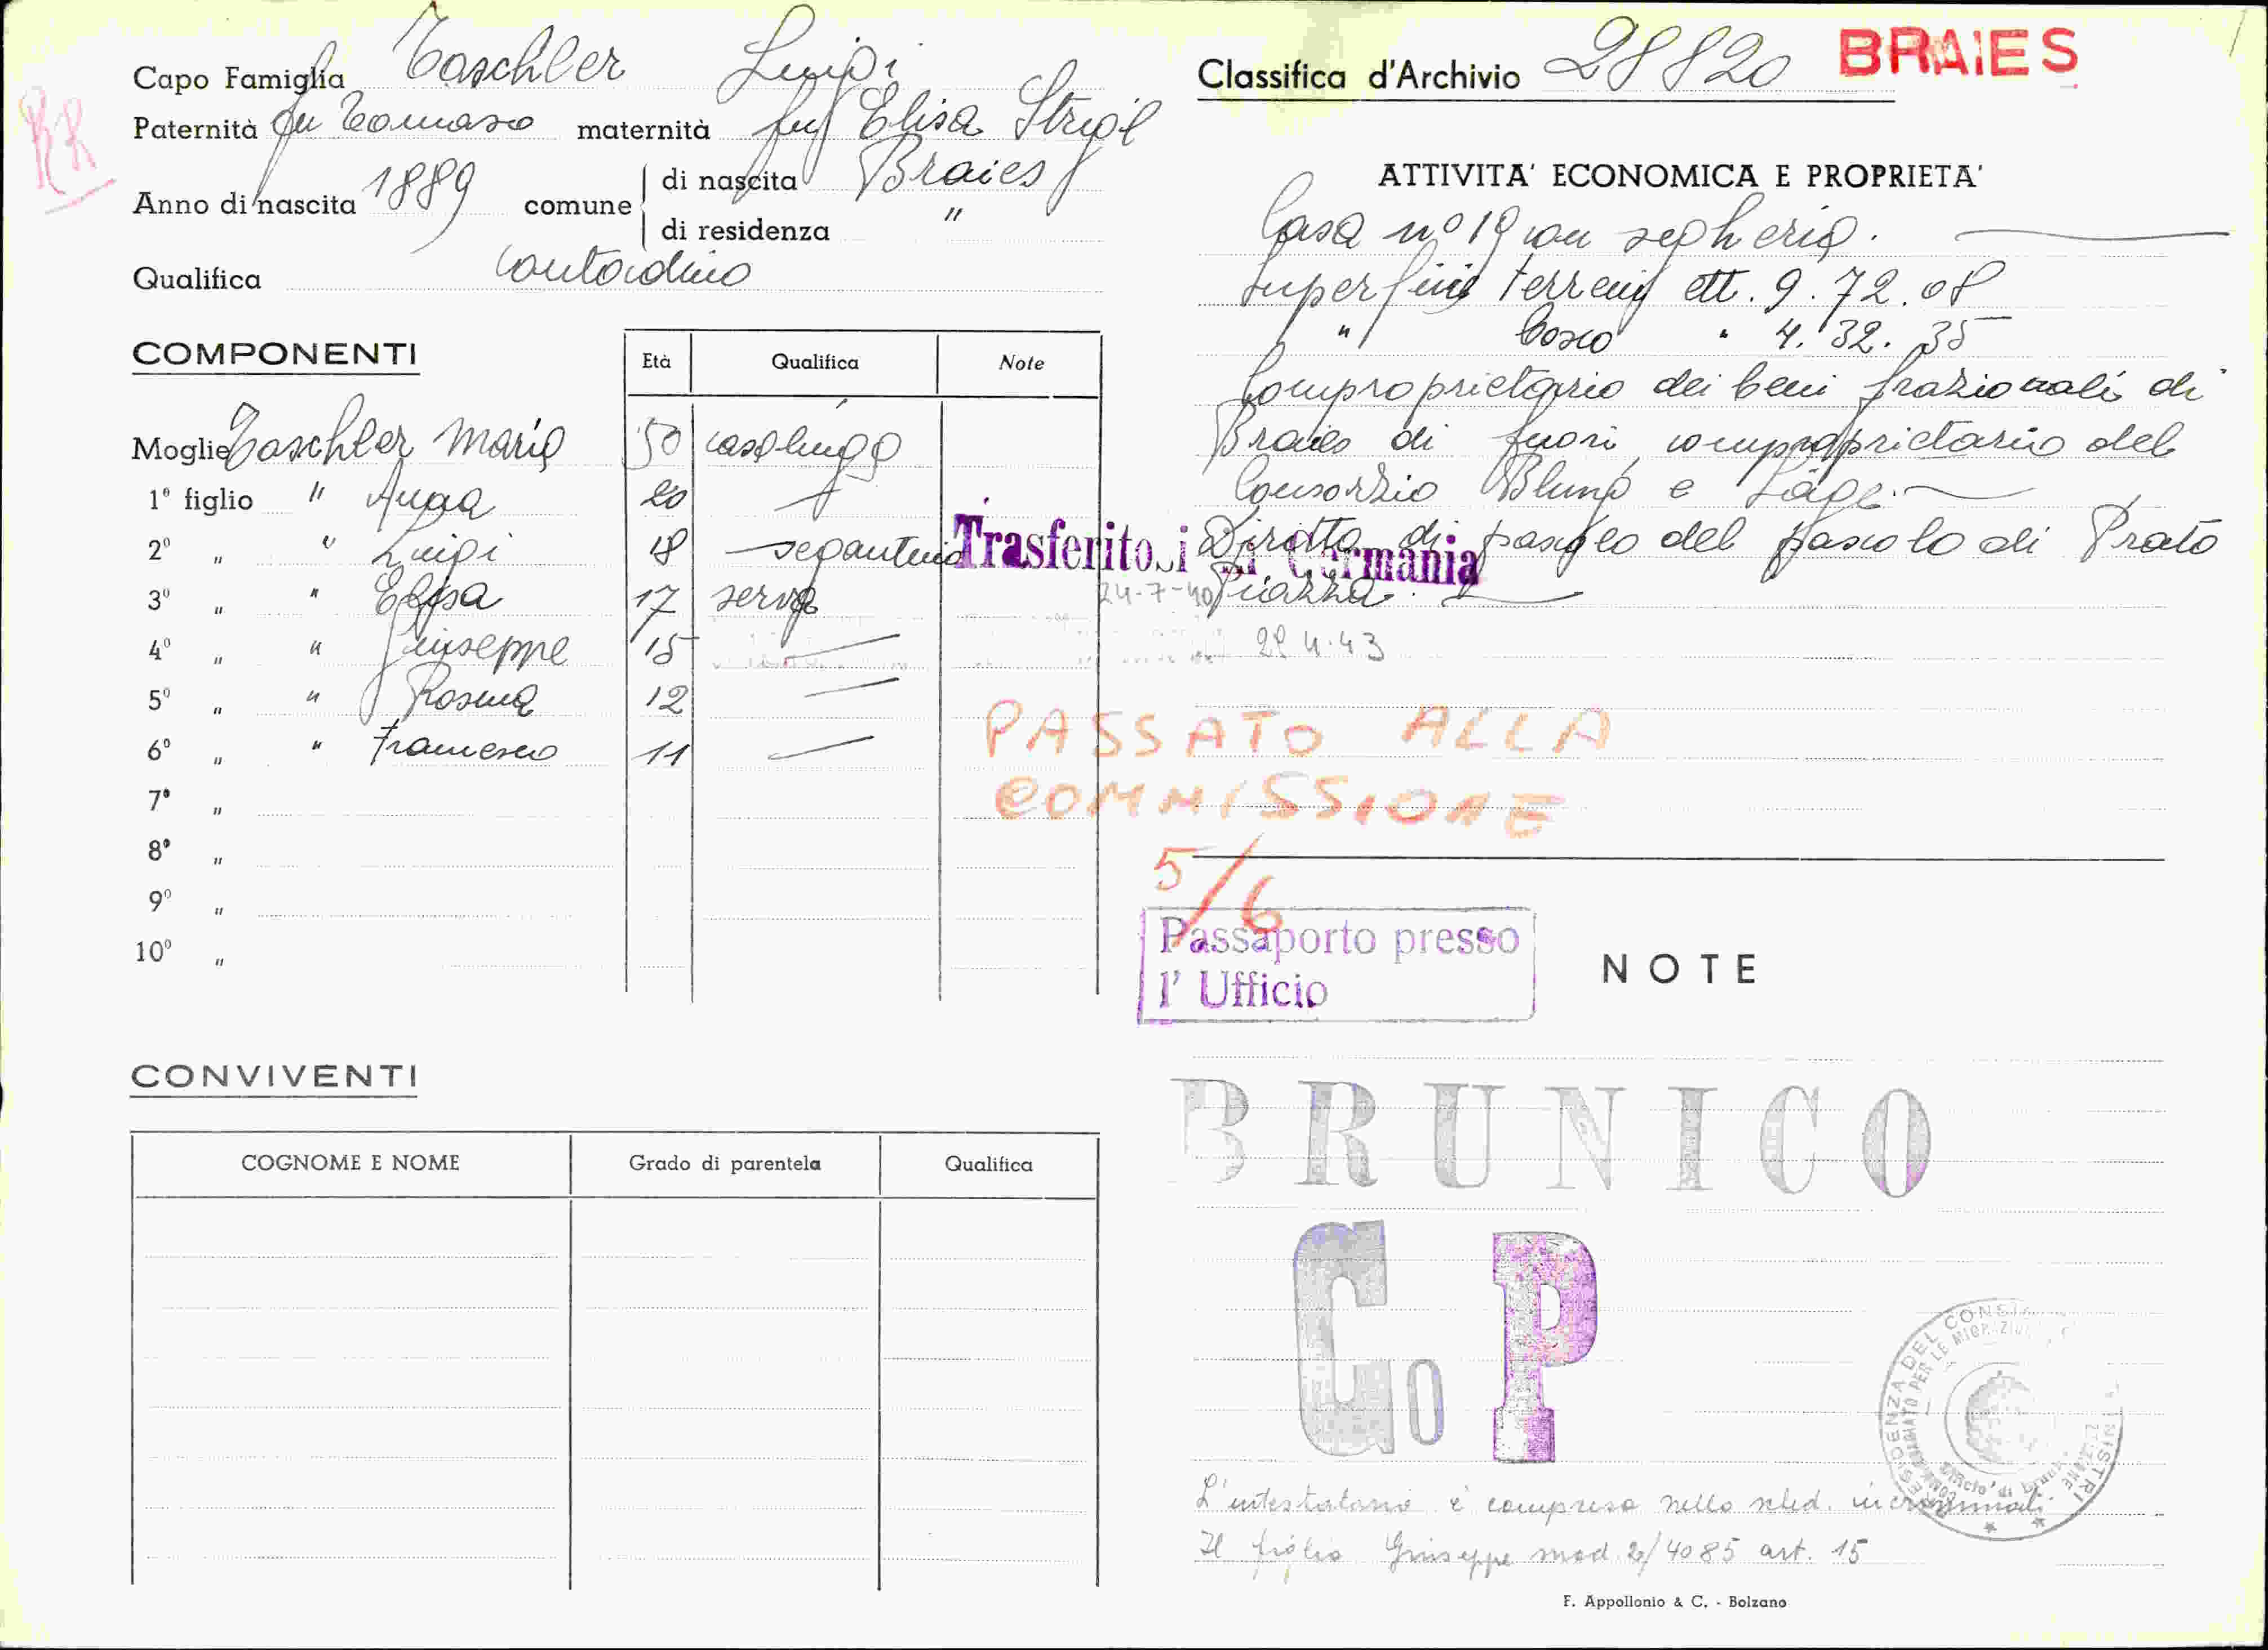 Capo Famiglia Taschler Luigi
Paternità fu Tomaso maternità fu Elisa Strigl
Anno di nascita 1889 comune di nascita Braies
di residenza "
Qualifica contadino
RR
COMPONENTI
Età Qualifica Note
Moglie Taschler Maria 50 casalinga
1º figlio " Anna 20 "
2º " " Luigi 18 segantino
3º " " Elisa 17 serva
4º " " Giuseppe 15 —
5º " " Rosina 12 —
6º " " Francesco 11 —
7º "
8º "
9º "
10º "
Trasferito i in Germania
24-7-40
CONVIVENTI
COGNOME E NOME Grado di parentela Qualifica
Classifica d'Archivio 28820 BRAIES
ATTIVITA' ECONOMICA E PROPRIETA'
Casa nº 19 con segheria.
Superficie terreni ett. 9.72.08
" bosco " 4.32.35
Comproprietario dei beni frazionali di
Braies di fuori, comproprietario del
Consorzio e
Diritto di pascolo del pascolo di Prato
Piazza.
28 4.43
PASSATO ALLA
COMMISSIONE
5/6
Passaporto presso
l' Ufficio
NOTE
BRUNICO
Go P
L'intestatario è compreso nello sched. incriminati.
Il figlio Giuseppe mod. 2/4085 art. 15
F. Appollonio & C. - Bolzano